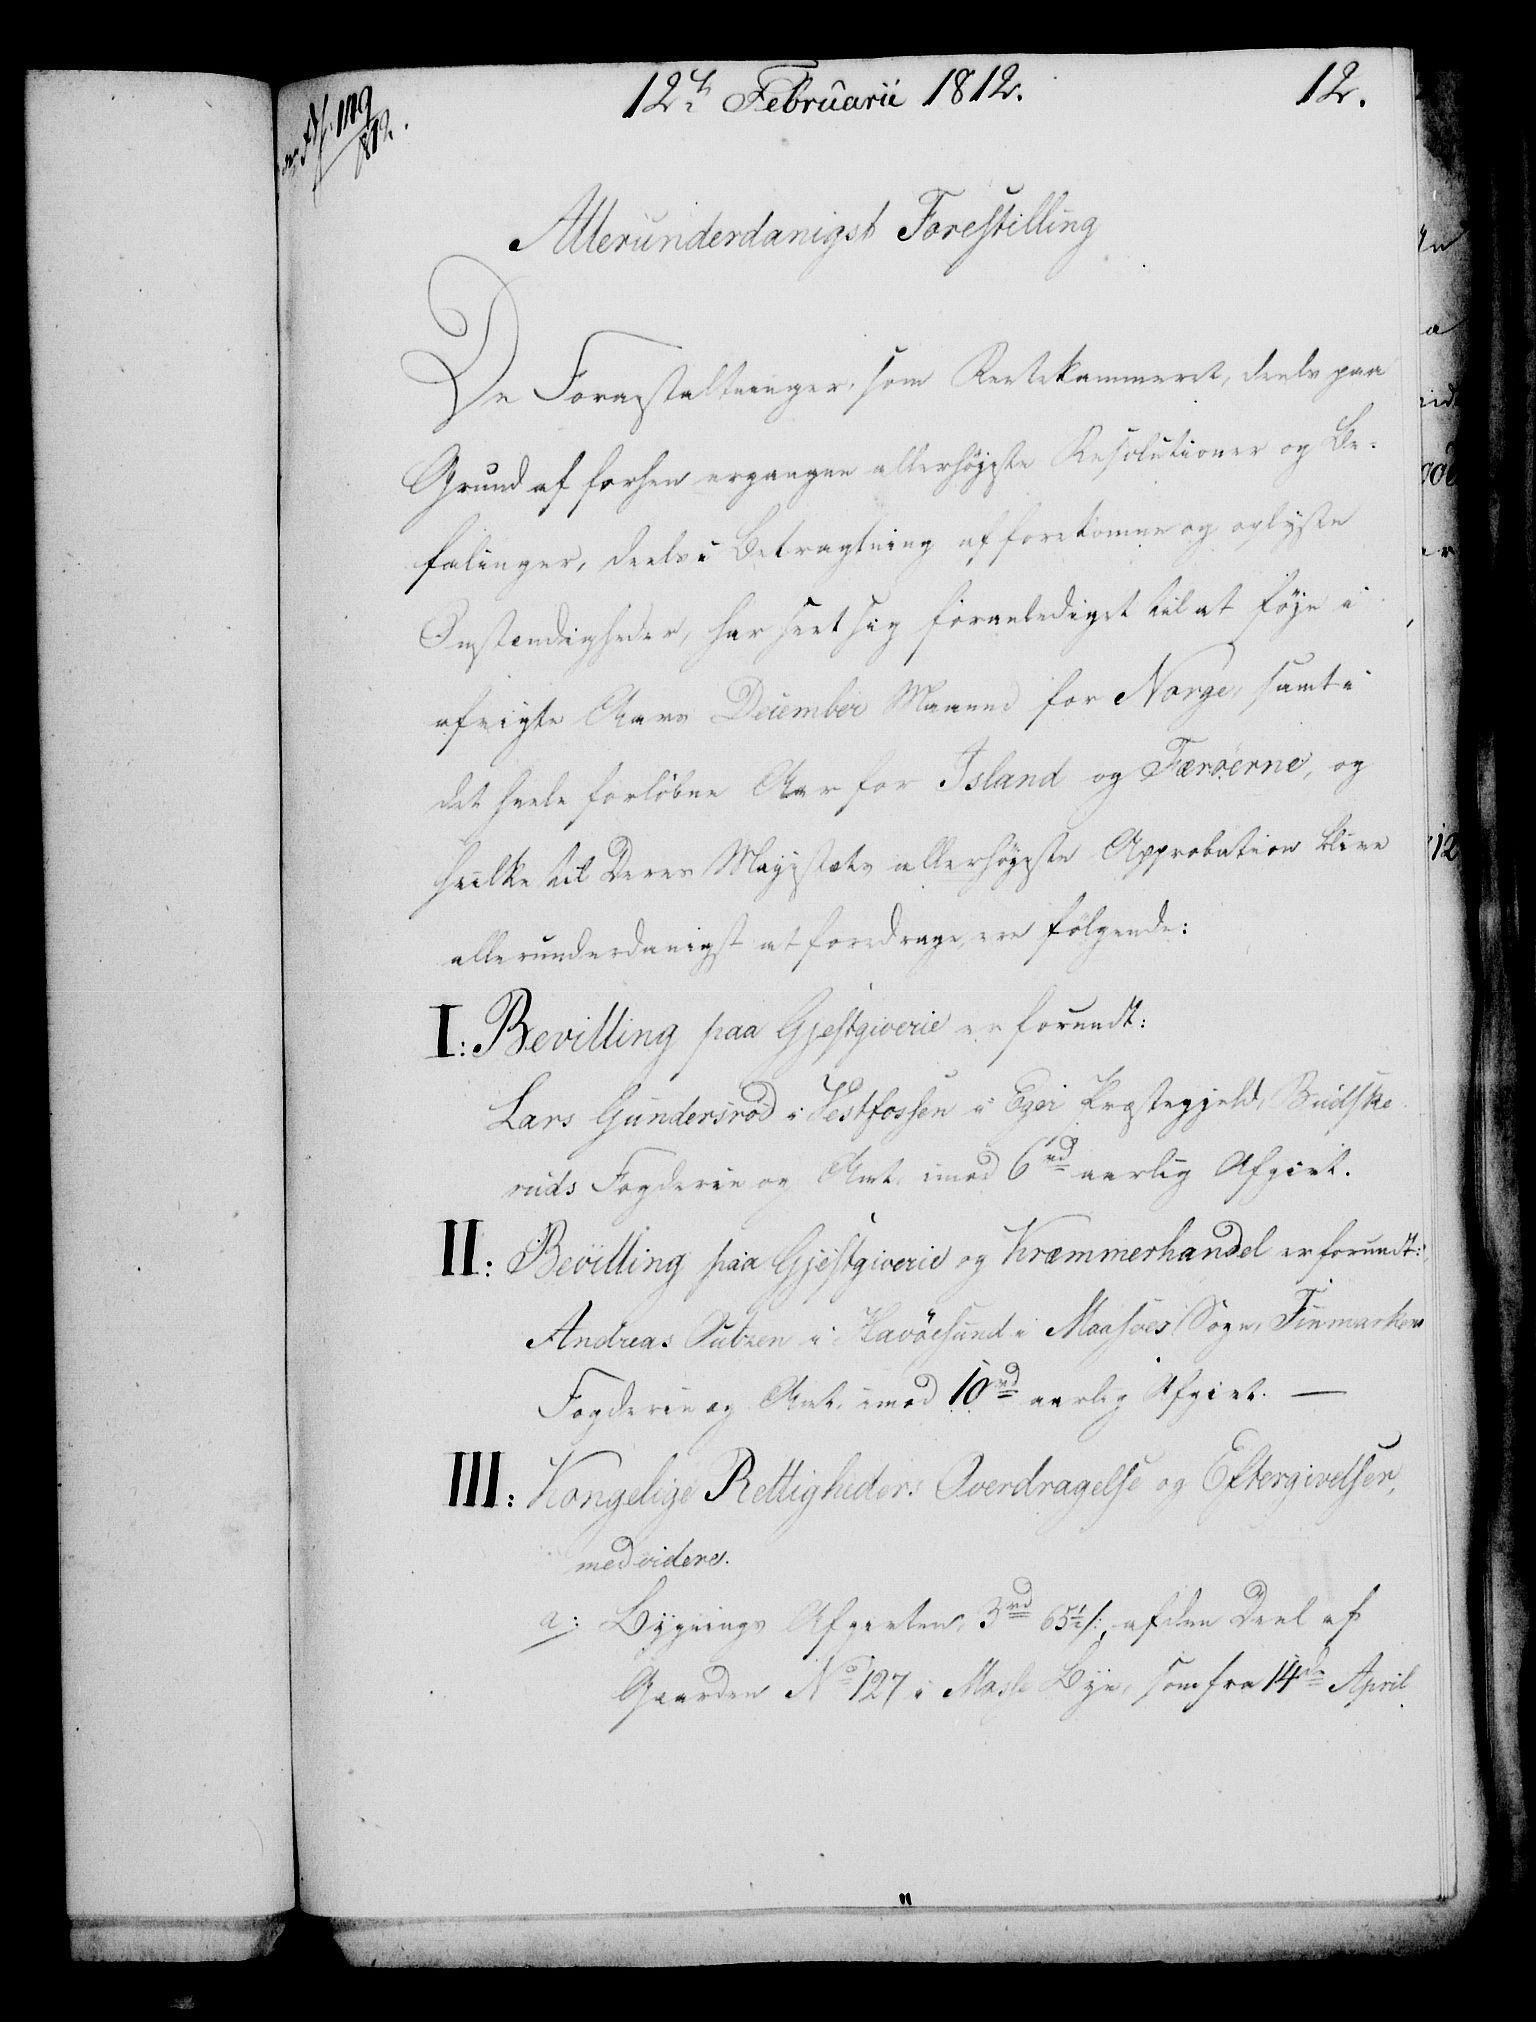 12te Februarii 1812. 12.
119
812.
Allerunderdanigst Forestilling
De Foranstaltninger, som Rentekammeret, deels paa
Grund af forhen ergangne allerhøjeste Resolutioner og Be-
falinger, deels i Betragtning af forekomne og oplyste
Omstændigheder, har seet sig foranlediget til at føje i
afvigte Aars December Maaned for Norge, samt i
det heele forløbne Aar for Island og Færöerne, og
hvilke til Deres Majestæts allerhøjeste Approbation blive
allerunderdanigst at foredrage, ere følgende:
I: Bevilling paa Gjestgiverie er forundt:
Lars Gundersrød i Vestfossen i Eger Præstegjeld, Budske-
ruds Fogderie og Amt, imod 6 rd aarlig Afgivt.
II: Bevilling paa Gjestgiverie og Kræmmerhandel er forundt:
Andreas i Havöesund i Maasøes Sogn, Finmarkens
Fogderie og Amt, imod 10 rd aarlig Afgivt. —
III: Kongelige Rettigheders Overdragelse og Eftergivelser,
med videre.
a: Bygnings Afgivten, 3 rd 65½ s:, af den Deel af
Gaarden No 127 i Bye, som fra 14de April